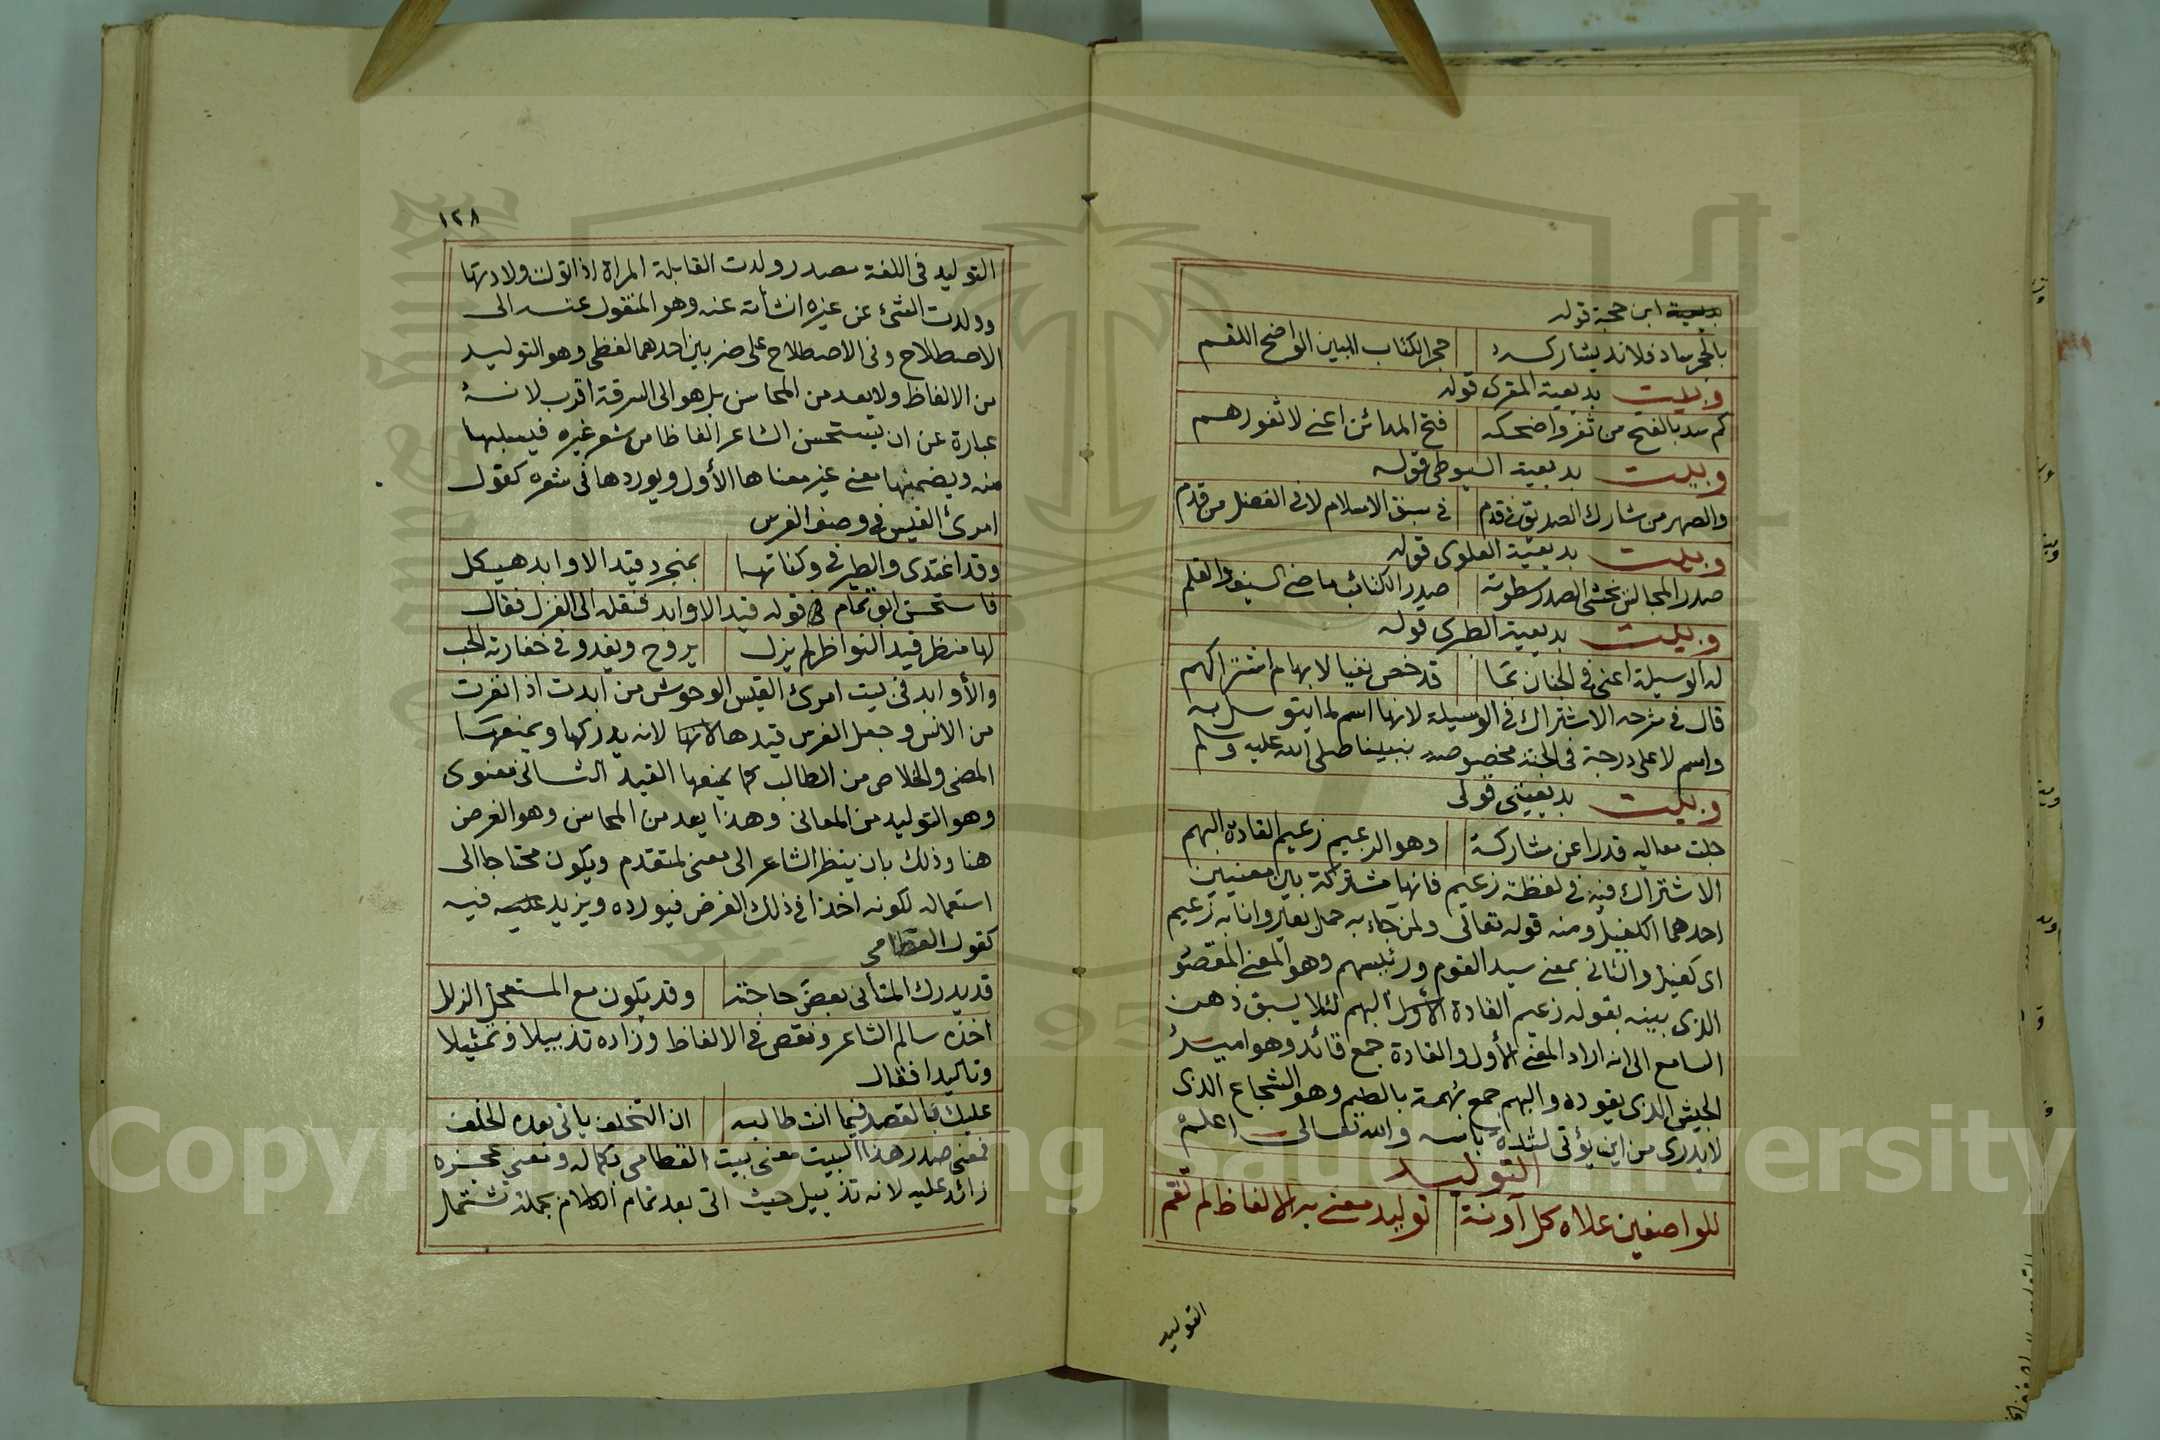 بديعية ابن حجة قوله
بالحجر ساد فلا ند يشاركه حجر الكتاب المبين الواضح اللقم
وبيت بديعية المقرى قوله
كم سد بالفتح من ثغر واضحكه فتح المدائن اعنى لا ثغورهم
وبيت بديعية السيوطى قوله
والصهر من شارك الصديق فى قدم فى سبق الاسلام لا فى الفضل من قدم
وبيت بديعية العلوى قوله
صدر المجالس يخشى الصدر سطوته صدر الكتائب ماضى السيف والقلم
وبيت بديعية الطبرى قوله
له الوسيلة اعنى فى الجنان كما قد خص نفيا لابهام اشتراكهم
قال فى شرحه الاشتراك فى الوسيلة لانها اسم لما يتوسل به
واسم لاعلى درجة فى الجنة مخصوصه بنبينا صلى الله عليه وسلم
وبيت بديعيتى قولى
جلت معاليه قدرا عن مشاركة وهو الزعيم زعيم القادة البهم
الاشتراك فيه فى لفظة زعيم فانها مشتركة بين معنيين
احدهما الكفيل ومنه قوله تعالى ولمن جاء به حمل بعير وانا به زعيم
اى كفيل والثانى بمعنى سيد القوم ورئيسهم وهو المعنى المقصود
الذى بينه بقوله زعيم القادة البهم لئلا يسبق ذهن
السامع الى انه اراد المعنى الأول والقادة جمع قائد وهو امير
الجيش الذى يقوده والبهم جمع بُهمة بالضم وهو الشجاع الذى
لا يدرى من اين يؤتى لشدة باسه والله تعالى اعلم
التوليد
للواصفين علاه كل آونة توليد معنى به الالفاظ لم تقم
التوليد
١٢٨
التوليد فى اللغة مصدر ولدت القابلة المراة اذا تولت ولادتها
وولدت الشئ عن غيره انشأته عنه وهو المنقول عنه الى
الاصطلاح وفى الاصطلاح على ضربين احدهما لفظى وهو التوليد
من الالفاظ ولا يعد من المحاسن بل هو الى السرقة اقرب لانه
عبارة عن ان يستحسن الشاعر الفاظا من شعر غيره فيسلبها
منه ويضمنها معنى غير معناها الأول ويوردها فى شعره كقول
امرئ القيس فى وصف الفرس
وقد اغتدى والطير فى وكناتها بمنجرد قيد الاوابد هيكل
فاستحسن ابو تمام قوله قيد الاوابد فنقله الى الغزل فقال
لها منظر قيد النواظر لم يزل يروح ويغدو فى خفارته الحب
والأوابد فى بيت امرئ القيس الوحوش من ابدت اذا نفرت
من الانس وجعل الفرس قيدها لانه يدركها ويمنعها
المضى والخلاص من الطالب كما يمنعها القيد الثانى معنوى
وهو التوليد من المعانى وهذا يعد من المحاسن وهو الغرض
هنا وذلك بان ينظر الشاعر الى معنى لمتقدم ويكون محتاجا الى
استعماله لكونه اخذا فى ذلك الغرض فيورده ويزيد عليه فيه
كقول القطامى
قد يدرك المتأنى بعض حاجته وقد يكون مع المستعجل الزلل
اخذه سالم الشاعر ونقص فى الالفاظ وزاده تذييلا وتمثيلا
وتاكيدا فقال
عليك بالقصد فيما انت طالبه ان التخلق ياتى بعده الخلق
فمعنى صدر هذا البيت معنى بيت القطامى بكماله ومعنى عجزه
زائد عليه لانه تذييل حيث اتى بعد تمام الكلام بجملة تشتمل